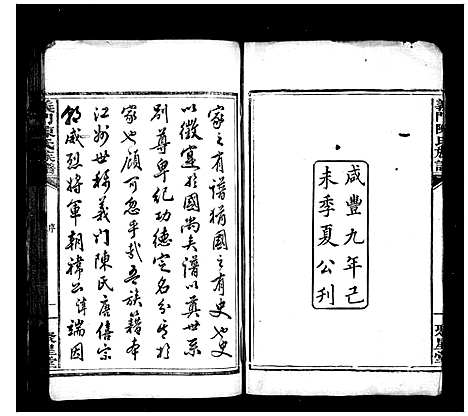 咸豐九年己
未季夏公刊
義門陳氏族譜
聚星堂
家之有譜猶國之有史也史
以徵
國尚矣譜以奠世系
別尊卑紀功德定名分其於
家也顧可忽乎哉吾族籍本
江州世稱義門陳氏唐僖宗
朝威烈將軍朝禕公諱端因
義門陳氏族譜
序
一
聚星堂